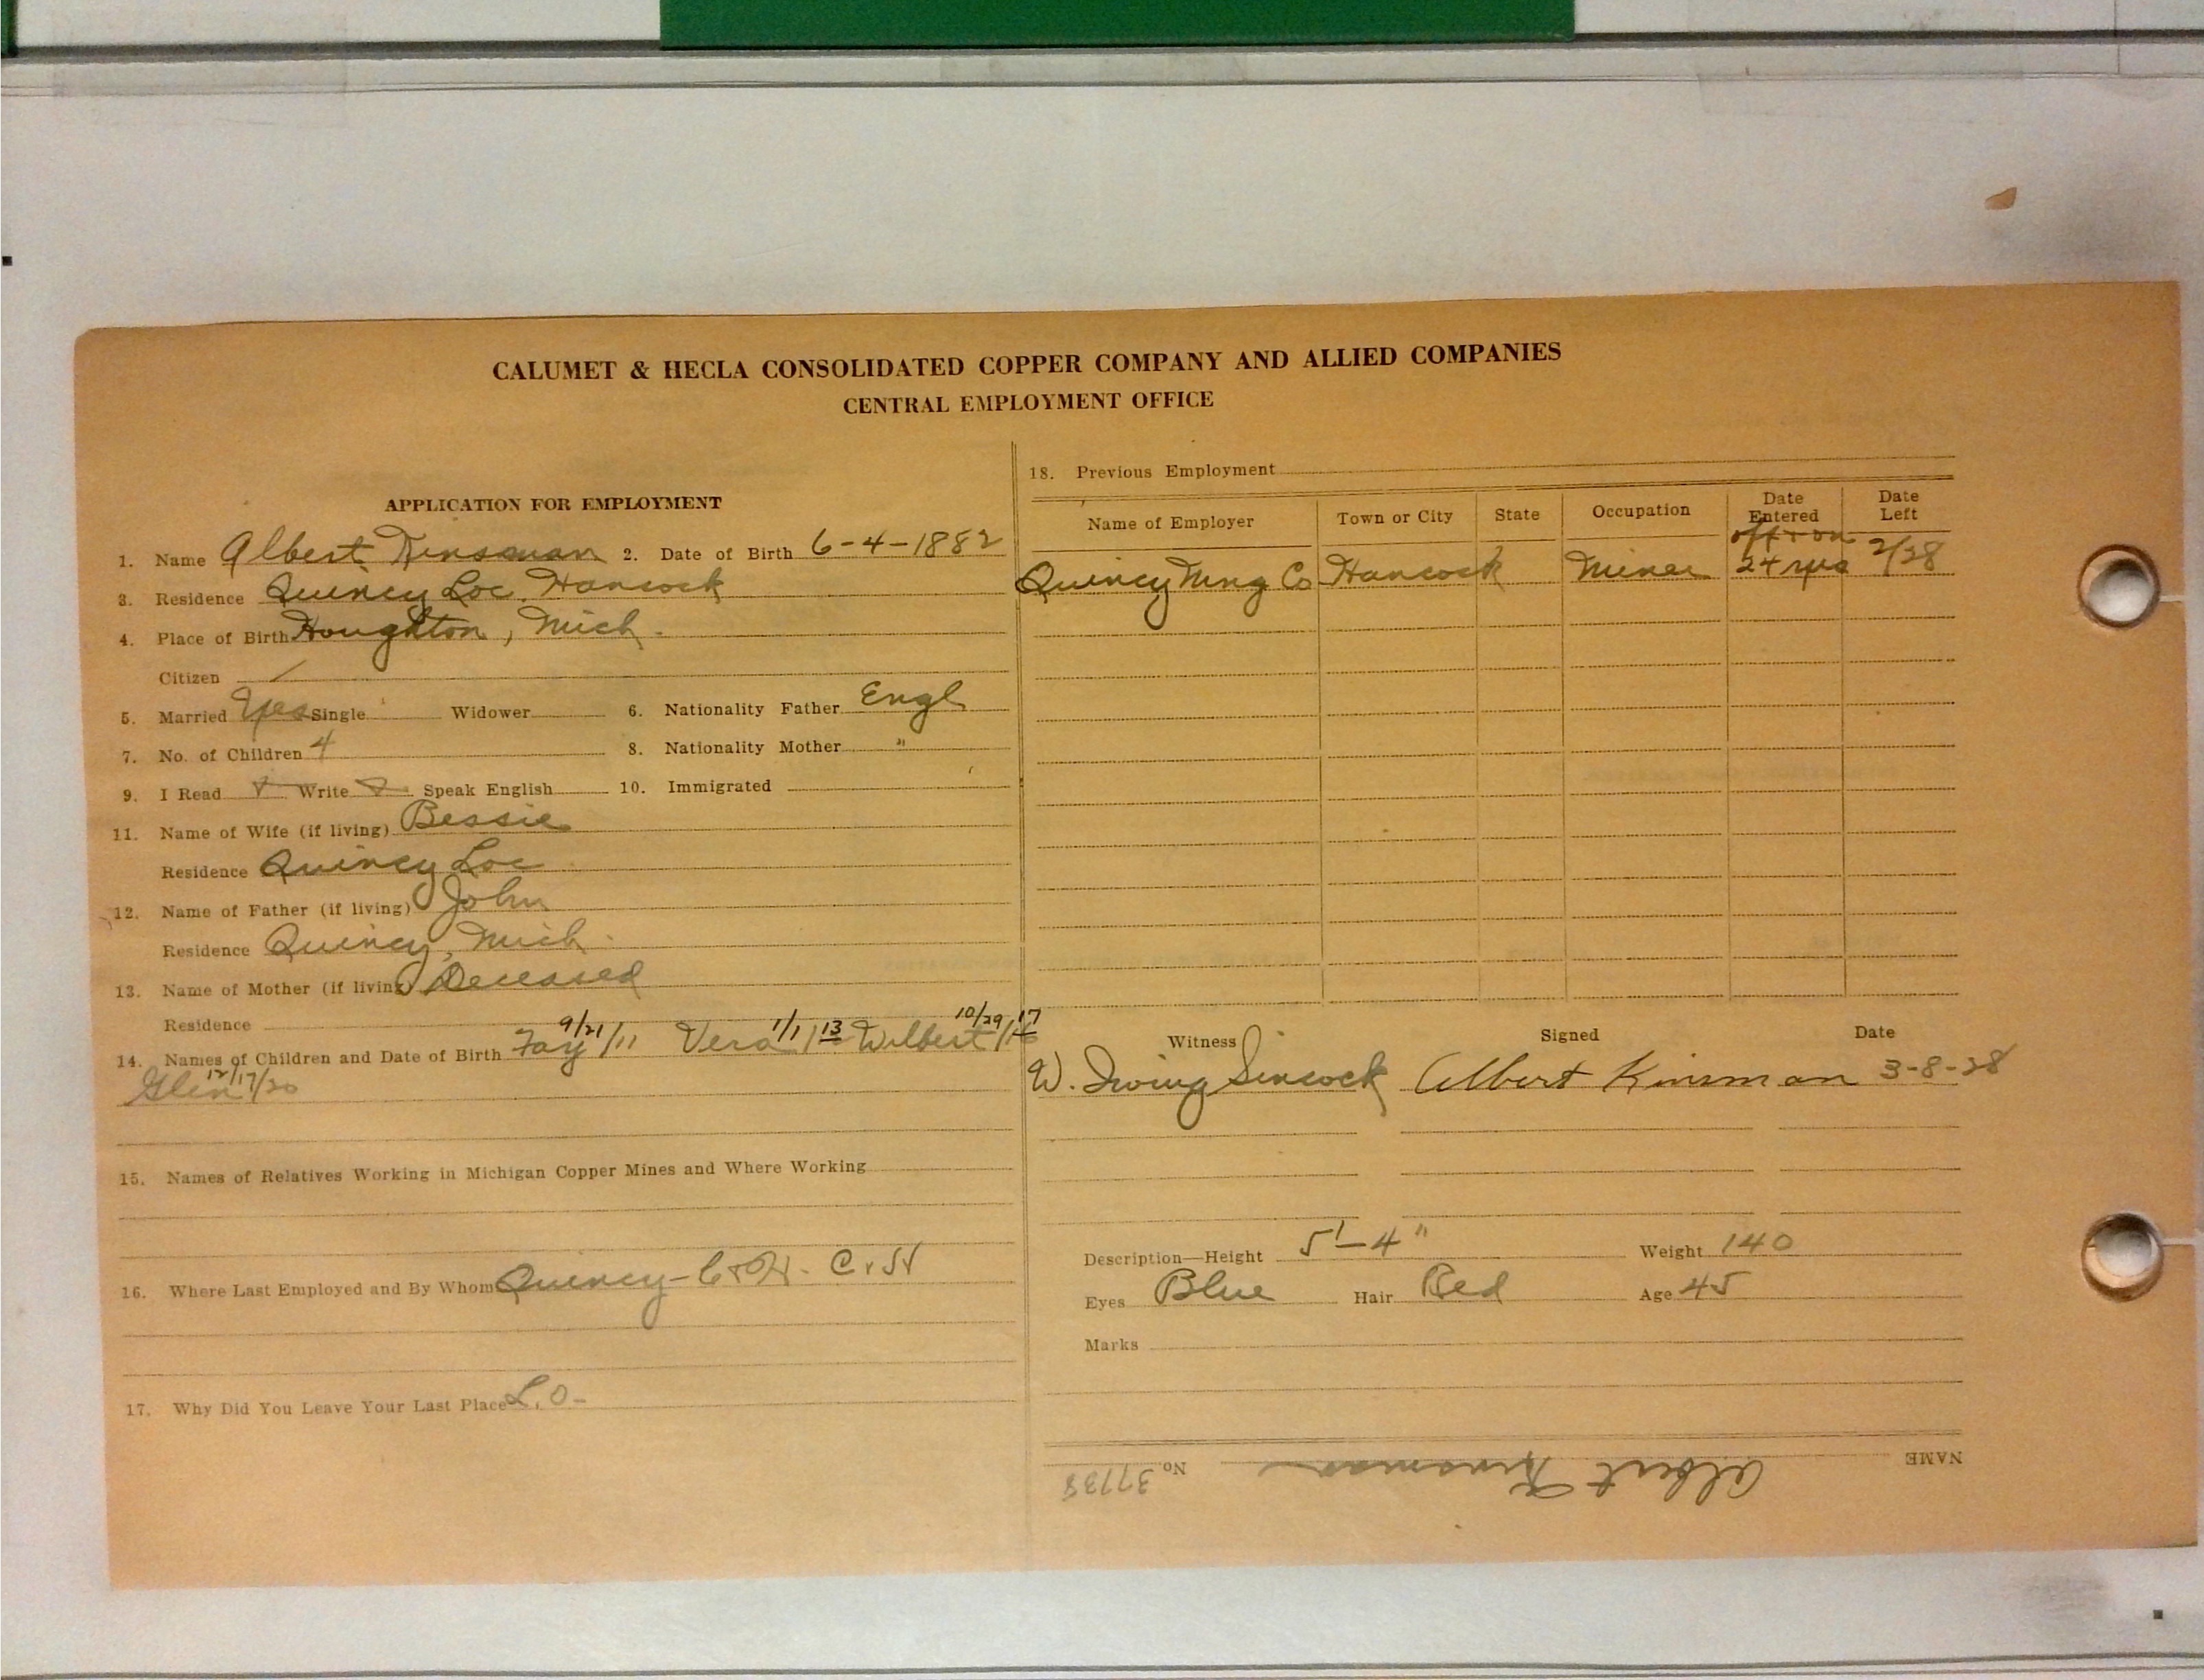 CALUMET & HECLA CONSOLIDATED COPPER COMPANY AND ALLIED COMPANIES
CENTRAL EMPLOYMENT OFFICE
APPLICATION FOR EMPLOYMENT
1. Name Albert Kinsman 2. Date of Birth 6-4-1882
3. Residence Quincy Loc. Hancock
4. Place of Birth Houghton, Mich.
Citizen
5. Married Yes Single Widower 6. Nationality Father Engl
7. No. of Children 4 8. Nationality Mother "
9. I Read Write Speak English 10. Immigrated
11. Name of Wife (if living) Bessie
Residence Quincy Loc
12. Name of Father (if living) John
Residence Quincy, Mich.
13. Name of Mother (if living) Deceased
Residence
14. Names of Children and Date of Birth Fay 9/21/11 Vera 1/1/13 Wilbert 10/29/17
Glen 12/17/20
15. Names of Relatives Working in Michigan Copper Mines and Where Working
16. Where Last Employed and By Whom Quincy - C+H. C+H
17. Why Did You Leave Your Last Place L.O-
18. Previous Employment
Name of Employer Town or City State Occupation Date Entered Date Left
off + on
Quincy Mng Co Hancock Miner 24 yrs 2/28
Witness Signed Date
W. Irving Sincock Albert Kinsman 3-8-28
Description—Height 5'-4" Weight 140
Eyes Blue Hair Red Age 45
Marks
NAME Albert Kinsman No. 37738